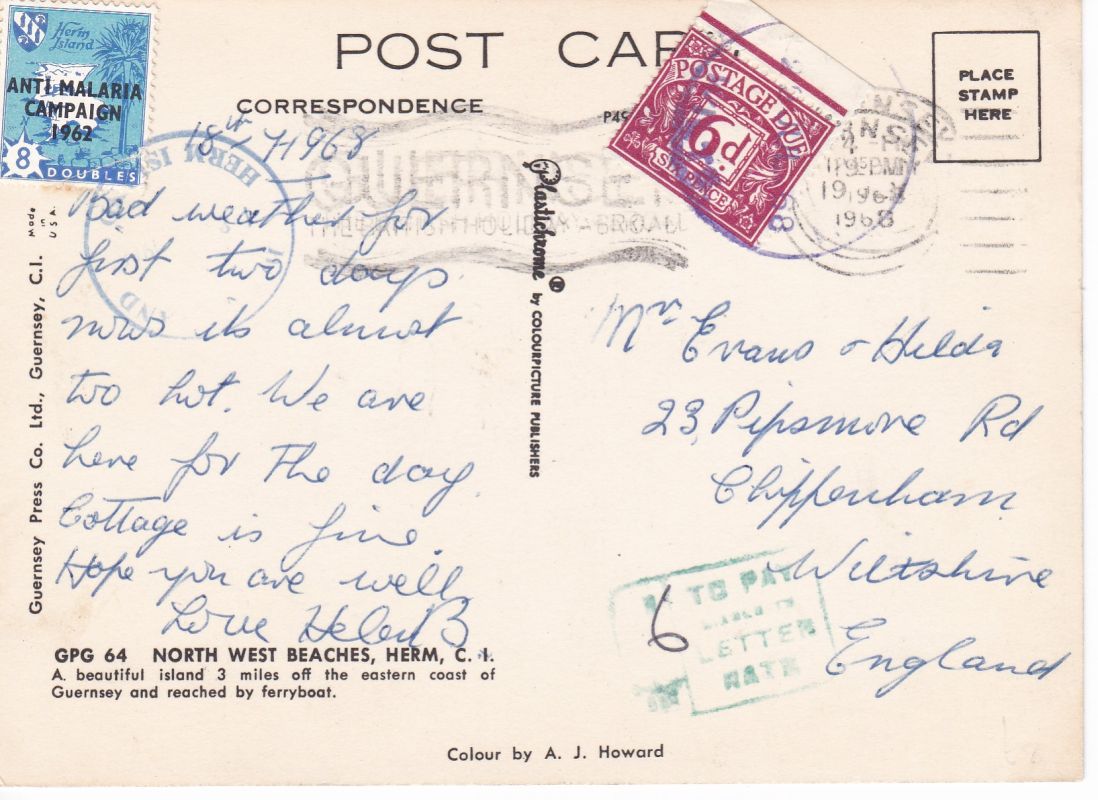 POST CARD
CORRESPONDENCE
Herm
Island
ANTI MALARIA
CAMPAIGN
1962
8 DOUBLES
HERM
POSTAGE DUE
6d
SIX PENCE
PLACE
STAMP
HERE
1968
GUERNSEY
HOLIDAY
18th 7 1968
Bad weather for
first two days
now its almost
too hot. We are
here for the day.
Cottage is fine.
Hope you are well,
Love Helen B.
GPG 64 NORTH WEST BEACHES, HERM, C. I.
A. beautiful island 3 miles off the eastern coast of
Guernsey and reached by ferryboat.
Guernsey Press Co. Ltd., Guernsey, C.I.
Made
in
U.S.A.
Plastichrome ® by COLOURPICTURE PUBLISHERS
Mrs Evans & Hilda
23, Pipsmore Rd
Chippenham
Wiltshire
England
TO PAY
6
LETTER
RATE
Colour by A. J. Howard